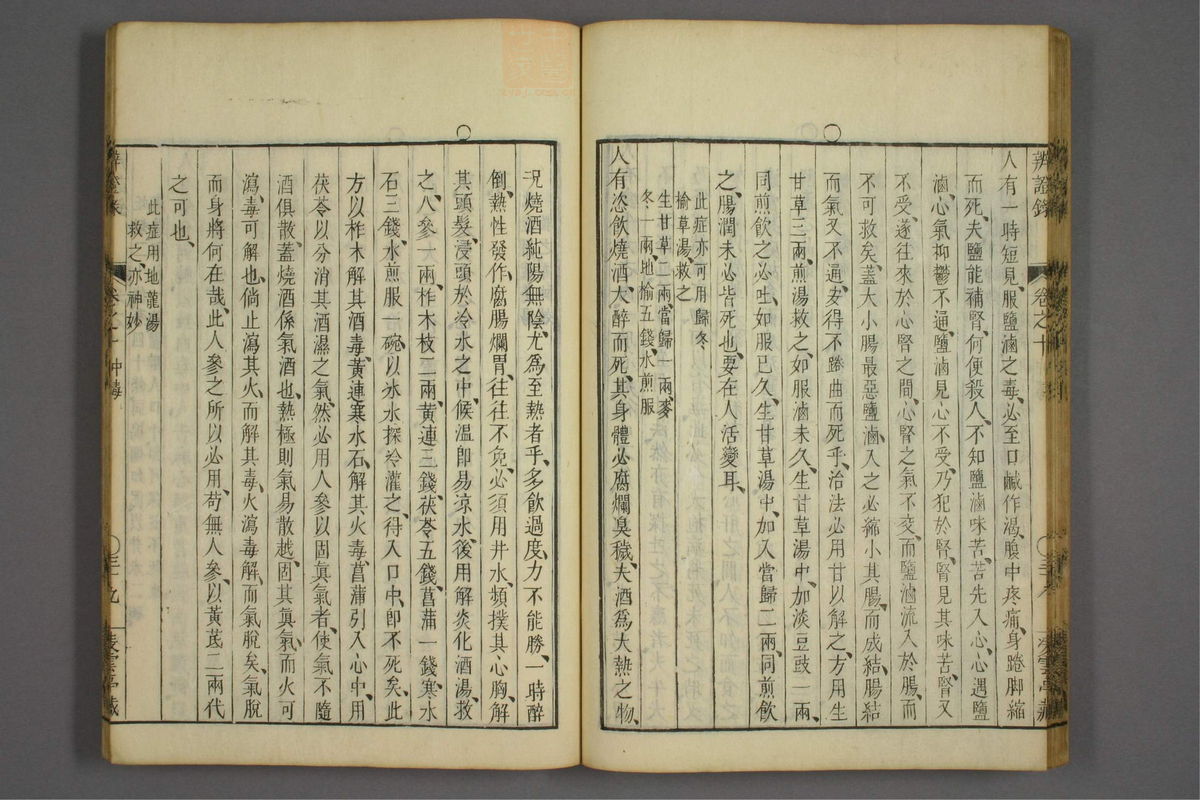 辨證錄 卷之十
人有一時短見、服鹽滷之毒、必至口鹹作渴、腹中疼痛、身踡脚縮
而死、夫鹽能補腎、何便殺人、不知鹽滷味苦、苦先入心、心遇鹽
滷、心氣抑鬱不通、鹽滷見心不受、乃犯於腎、腎見其味苦、腎又
不受、遂往來於心腎之間、心腎之氣不交、而鹽滷流入於腸、而
不可救矣、蓋大小腸最惡鹽滷、入之必縮小其腸、而成結、腸結
而氣又不通、安得不踡曲而死乎、治法必用甘以解之、方用生
甘草三兩、煎湯救之、如服滷未久、生甘草湯中、加淡豆豉一兩、
同煎飲之必吐、如服已久、生甘草湯中、加入當歸二兩、同煎飲
之、腸潤未必皆死也、要在人活變耳、
此症亦可用歸冬
榆草湯、救之
生甘草二兩、當歸一兩、麥
冬一兩、地榆五錢、水煎服
人有恣飲燒酒、大醉而死、其身體必腐爛臭穢、夫酒爲大熱之物、
況燒酒純陽無陰、尤爲至熱者乎、多飲過度、力不能勝、一時醉
倒、熱性發作、腐腸爛胃、往往不免、必須用井水、頻撲其心胸、解
其頭髮、浸頭於冷水之中、候溫卽易凉水、後用解炎化酒湯、救
之、人參一兩、柞木枝二兩、黃連三錢、茯苓五錢、菖蒲一錢、寒水
石三錢、水煎服一碗、以冰水探冷灌之、得入口中、卽不死矣、此
方以柞木解其酒毒、黃連寒水石、解其火毒、菖蒲引入心中、用
茯苓以分消其酒濕之氣、然必用人參以固眞氣者、使氣不隨
酒俱散、蓋燒酒係氣酒也、熱極則氣易散越、固其眞氣、而火可
瀉、毒可解也、倘止瀉其火、而解其毒、火瀉毒解、而氣脫矣、氣脫
而身將何在哉、此人參之所以必用、苟無人參、以黃茋二兩代
之可也、
此症用地龍湯
救之、亦神妙
卷之十 中毒 三十九